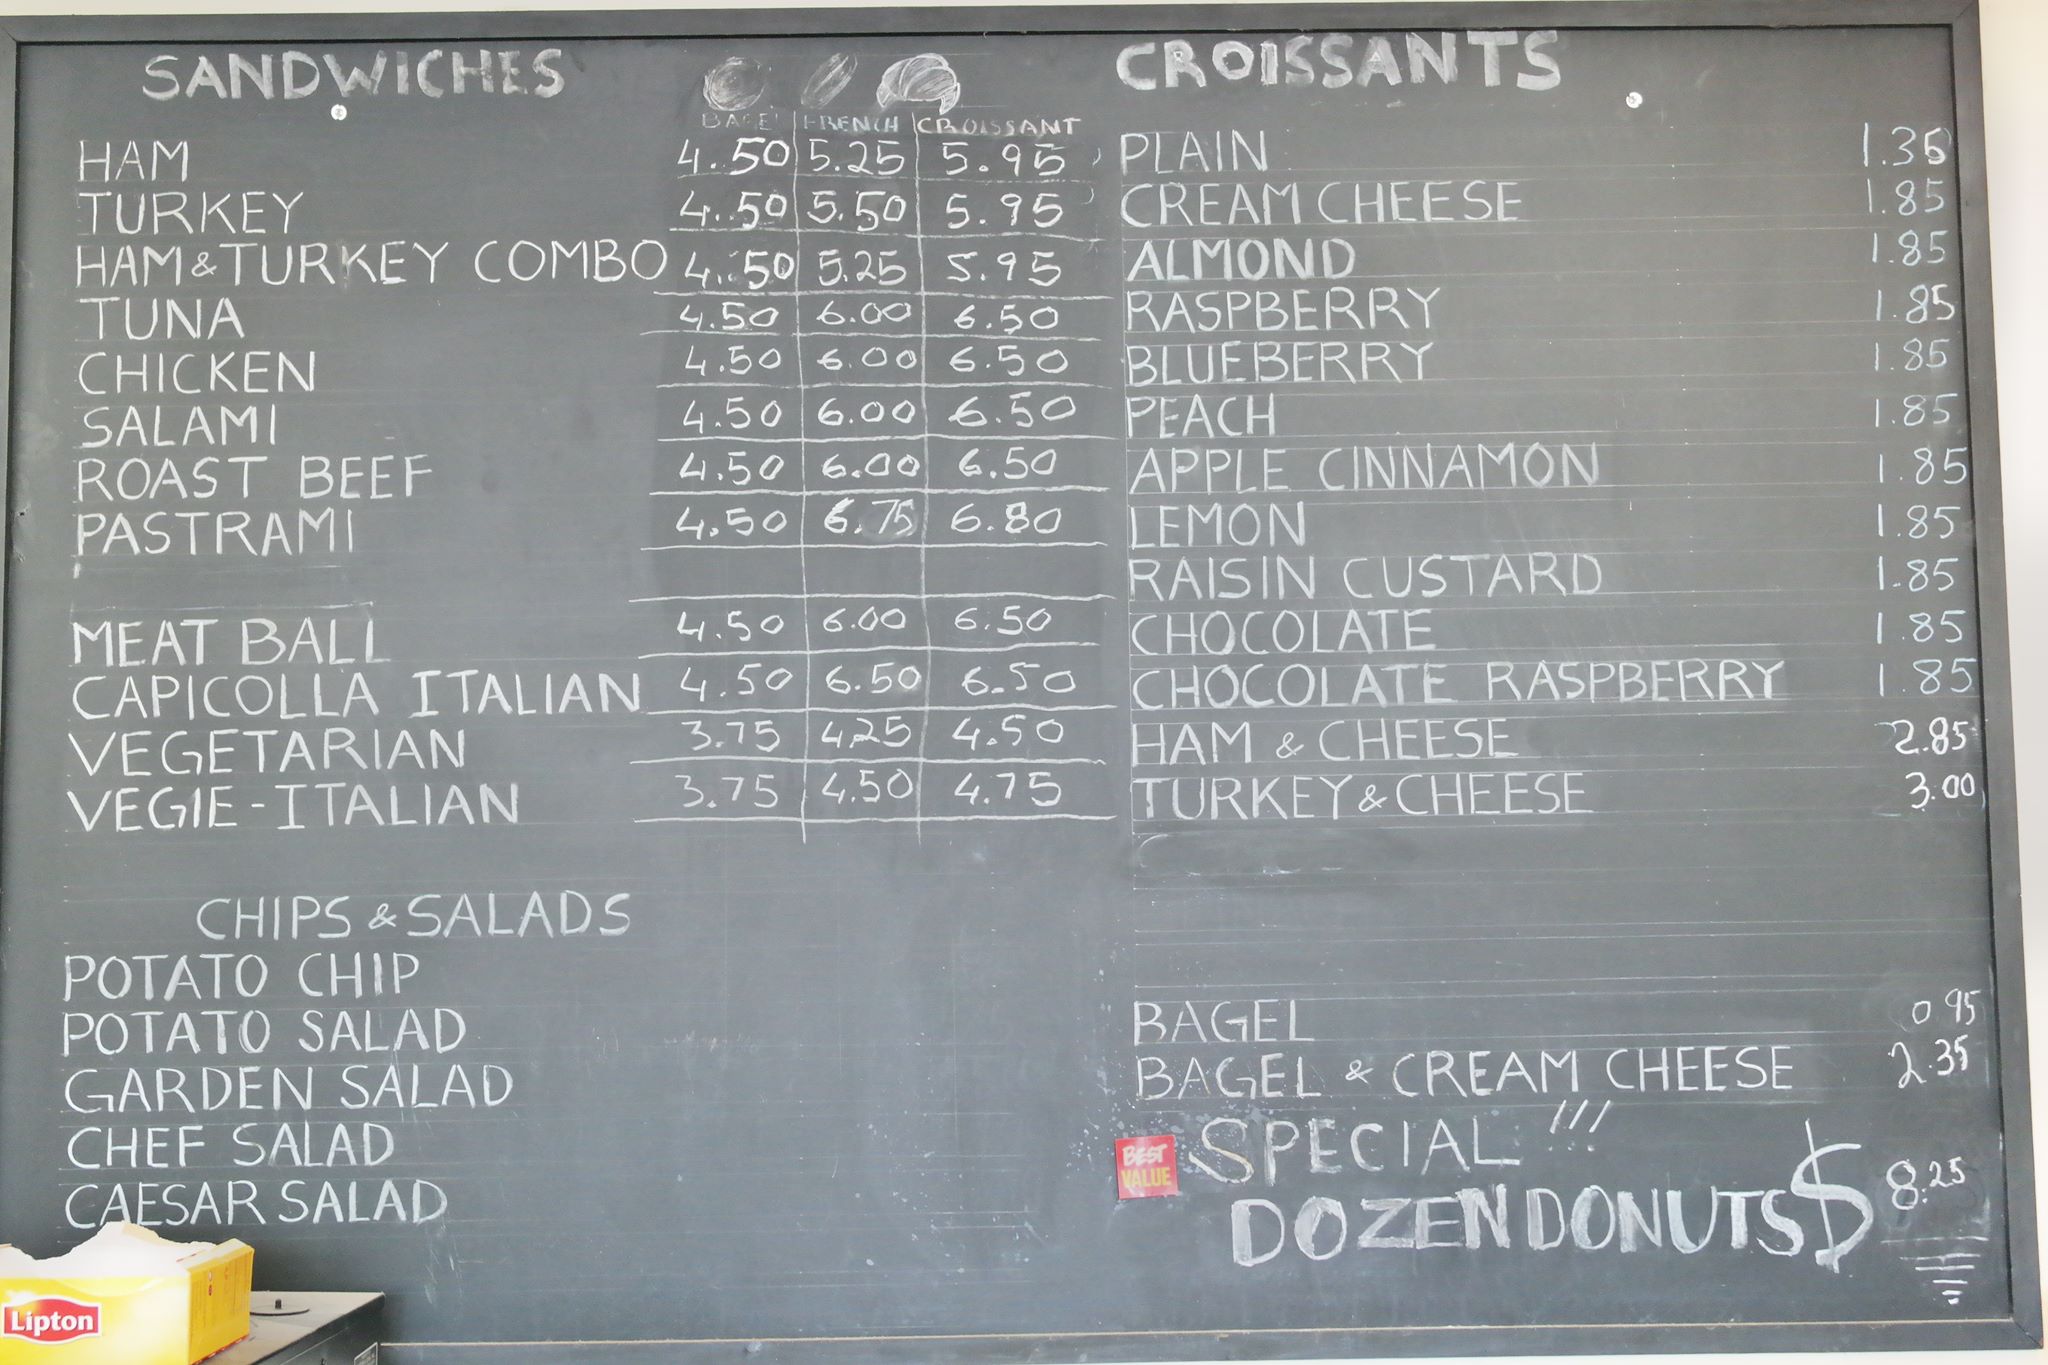 SANDWICHES
BAGEL FRENCH CROISSANT
HAM 4.50 5.25 5.95
TURKEY 4.50 5.50 5.95
HAM & TURKEY COMBO 4.50 5.25 5.95
TUNA 4.50 6.00 6.50
CHICKEN 4.50 6.00 6.50
SALAMI 4.50 6.00 6.50
ROAST BEEF 4.50 6.00 6.50
PASTRAMI 4.50 6.75 6.80
MEAT BALL 4.50 6.00 6.50
CAPICOLLA ITALIAN 4.50 6.50 6.50
VEGETARIAN 3.75 4.25 4.50
VEGIE-ITALIAN 3.75 4.50 4.75
CHIPS & SALADS
POTATO CHIP
POTATO SALAD
GARDEN SALAD
CHEF SALAD
CAESAR SALAD
Lipton
CROISSANTS
PLAIN 1.35
CREAM CHEESE 1.85
ALMOND 1.85
RASPBERRY 1.85
BLUEBERRY 1.85
PEACH 1.85
APPLE CINNAMON 1.85
LEMON 1.85
RAISIN CUSTARD 1.85
CHOCOLATE 1.85
CHOCOLATE RASPBERRY 1.85
HAM & CHEESE 2.85
TURKEY & CHEESE 3.00
BAGEL 0.95
BAGEL & CREAM CHEESE 2.35
BEST
VALUE
SPECIAL !!!
DOZEN DONUTS $8.25